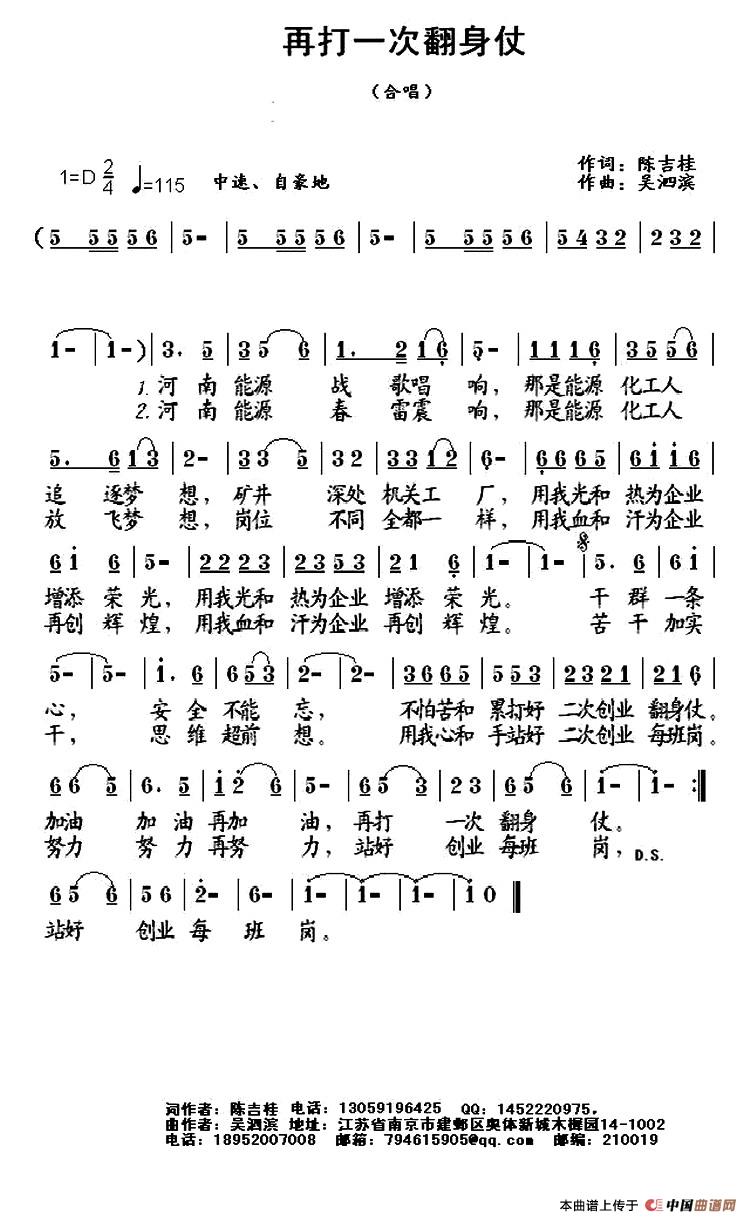 再打一次翻身仗
（合唱）
1=D 2/4 ♩=115 中速、自豪地
作词：陈吉桂
作曲：吴泗滨
(5 5556 | 5- | 5 5556 | 5- | 5 5556 | 5432 | 232 |
1- | 1-) | 3. 5 | 335 6 | 1. 216 | 5- | 1116 | 3556 |
1.河南能源 战 歌唱 响，那是能源 化工人
2.河南能源 春 雷震 响，那是能源 化工人
5. 613 | 2- | 33 5 | 32 | 3312 | 6- | 6665 | 6116 |
追 逐梦 想，矿井 深处 机关工 厂，用我光和 热为企业
放 飞梦 想，岗位 不同 全都一 样，用我血和 汗为企业
61 6 | 5- | 2223 | 2353 | 21 6 | 1- | 1- | 5. 6 | 61 |
增添 荣 光，用我光和 热为企业 增添 荣 光。 干 群 一条
再创 辉 煌，用我血和 汗为企业 再创 辉 煌。 苦 干 加实
5- | 5- | 1. 6 | 653 | 2- | 2- | 3665 | 553 | 2321 | 216 |
心， 安 全 不能 忘， 不怕苦和 累打好 二次创业 翻身仗。
干， 思 维 超前 想。 用我心和 手站好 二次创业 每班岗。
66 5 | 6. 5 | 12 6 | 5- | 65 3 | 23 | 65 6 | 1- | 1- :|
加油 加 油 再加 油，再打 一次 翻身 仗。
努力 努 力 再努 力，站好 创业 每班 岗，D.S.
65 6 | 56 | 2- | 6- | 1- | 1- | 1- | 10 ‖
站好 创业 每 班 岗。
词作者：陈吉桂 电话：13059196425 QQ：1452220975.
曲作者：吴泗滨 地址：江苏省南京市建邺区奥体新城木樨园14-1002
电话：18952007008 邮箱：794615905@qq.com 邮编：210019
本曲谱上传于 中国曲谱网